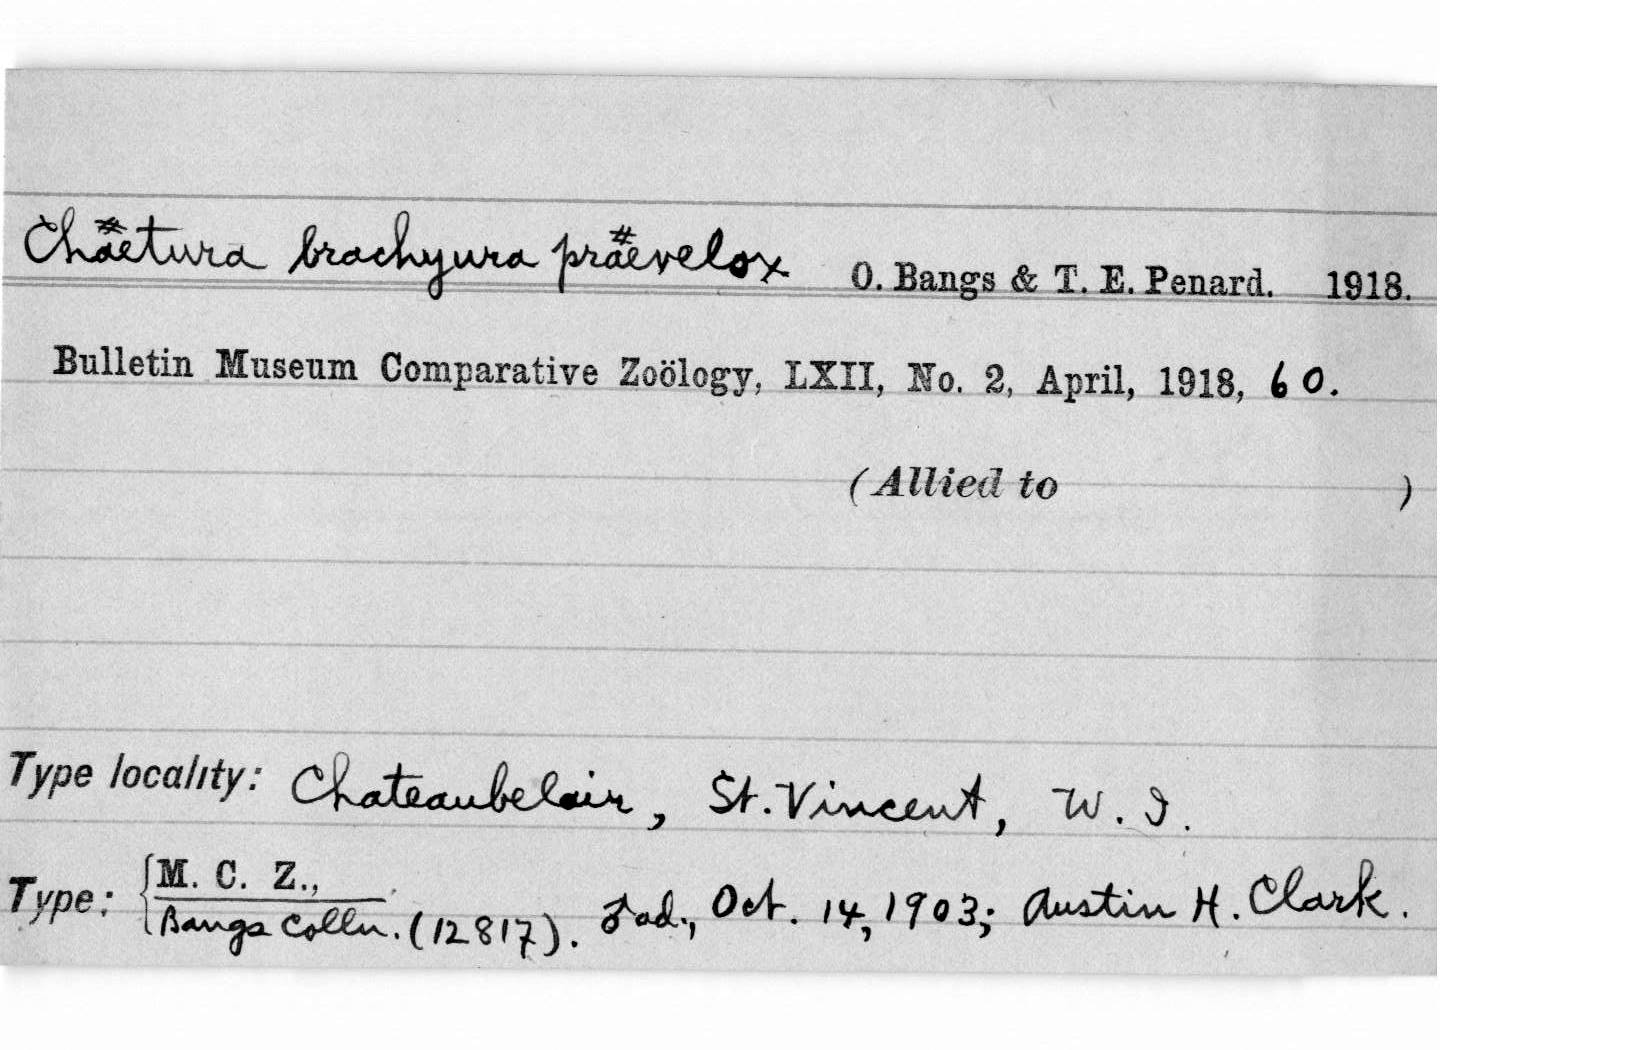 Chäetura brachyura präevelox O. Bangs & T. E. Penard. 1918.
Bulletin Museum Comparative Zoölogy, LXII, No. 2, April, 1918, 60.
(Allied to )
Type locality: Chateaubelair, St. Vincent, W. I.
Type: { M. C. Z.,
Bangs Colln. (12817). ♂ ad., Oct. 14, 1903; Austin H. Clark.